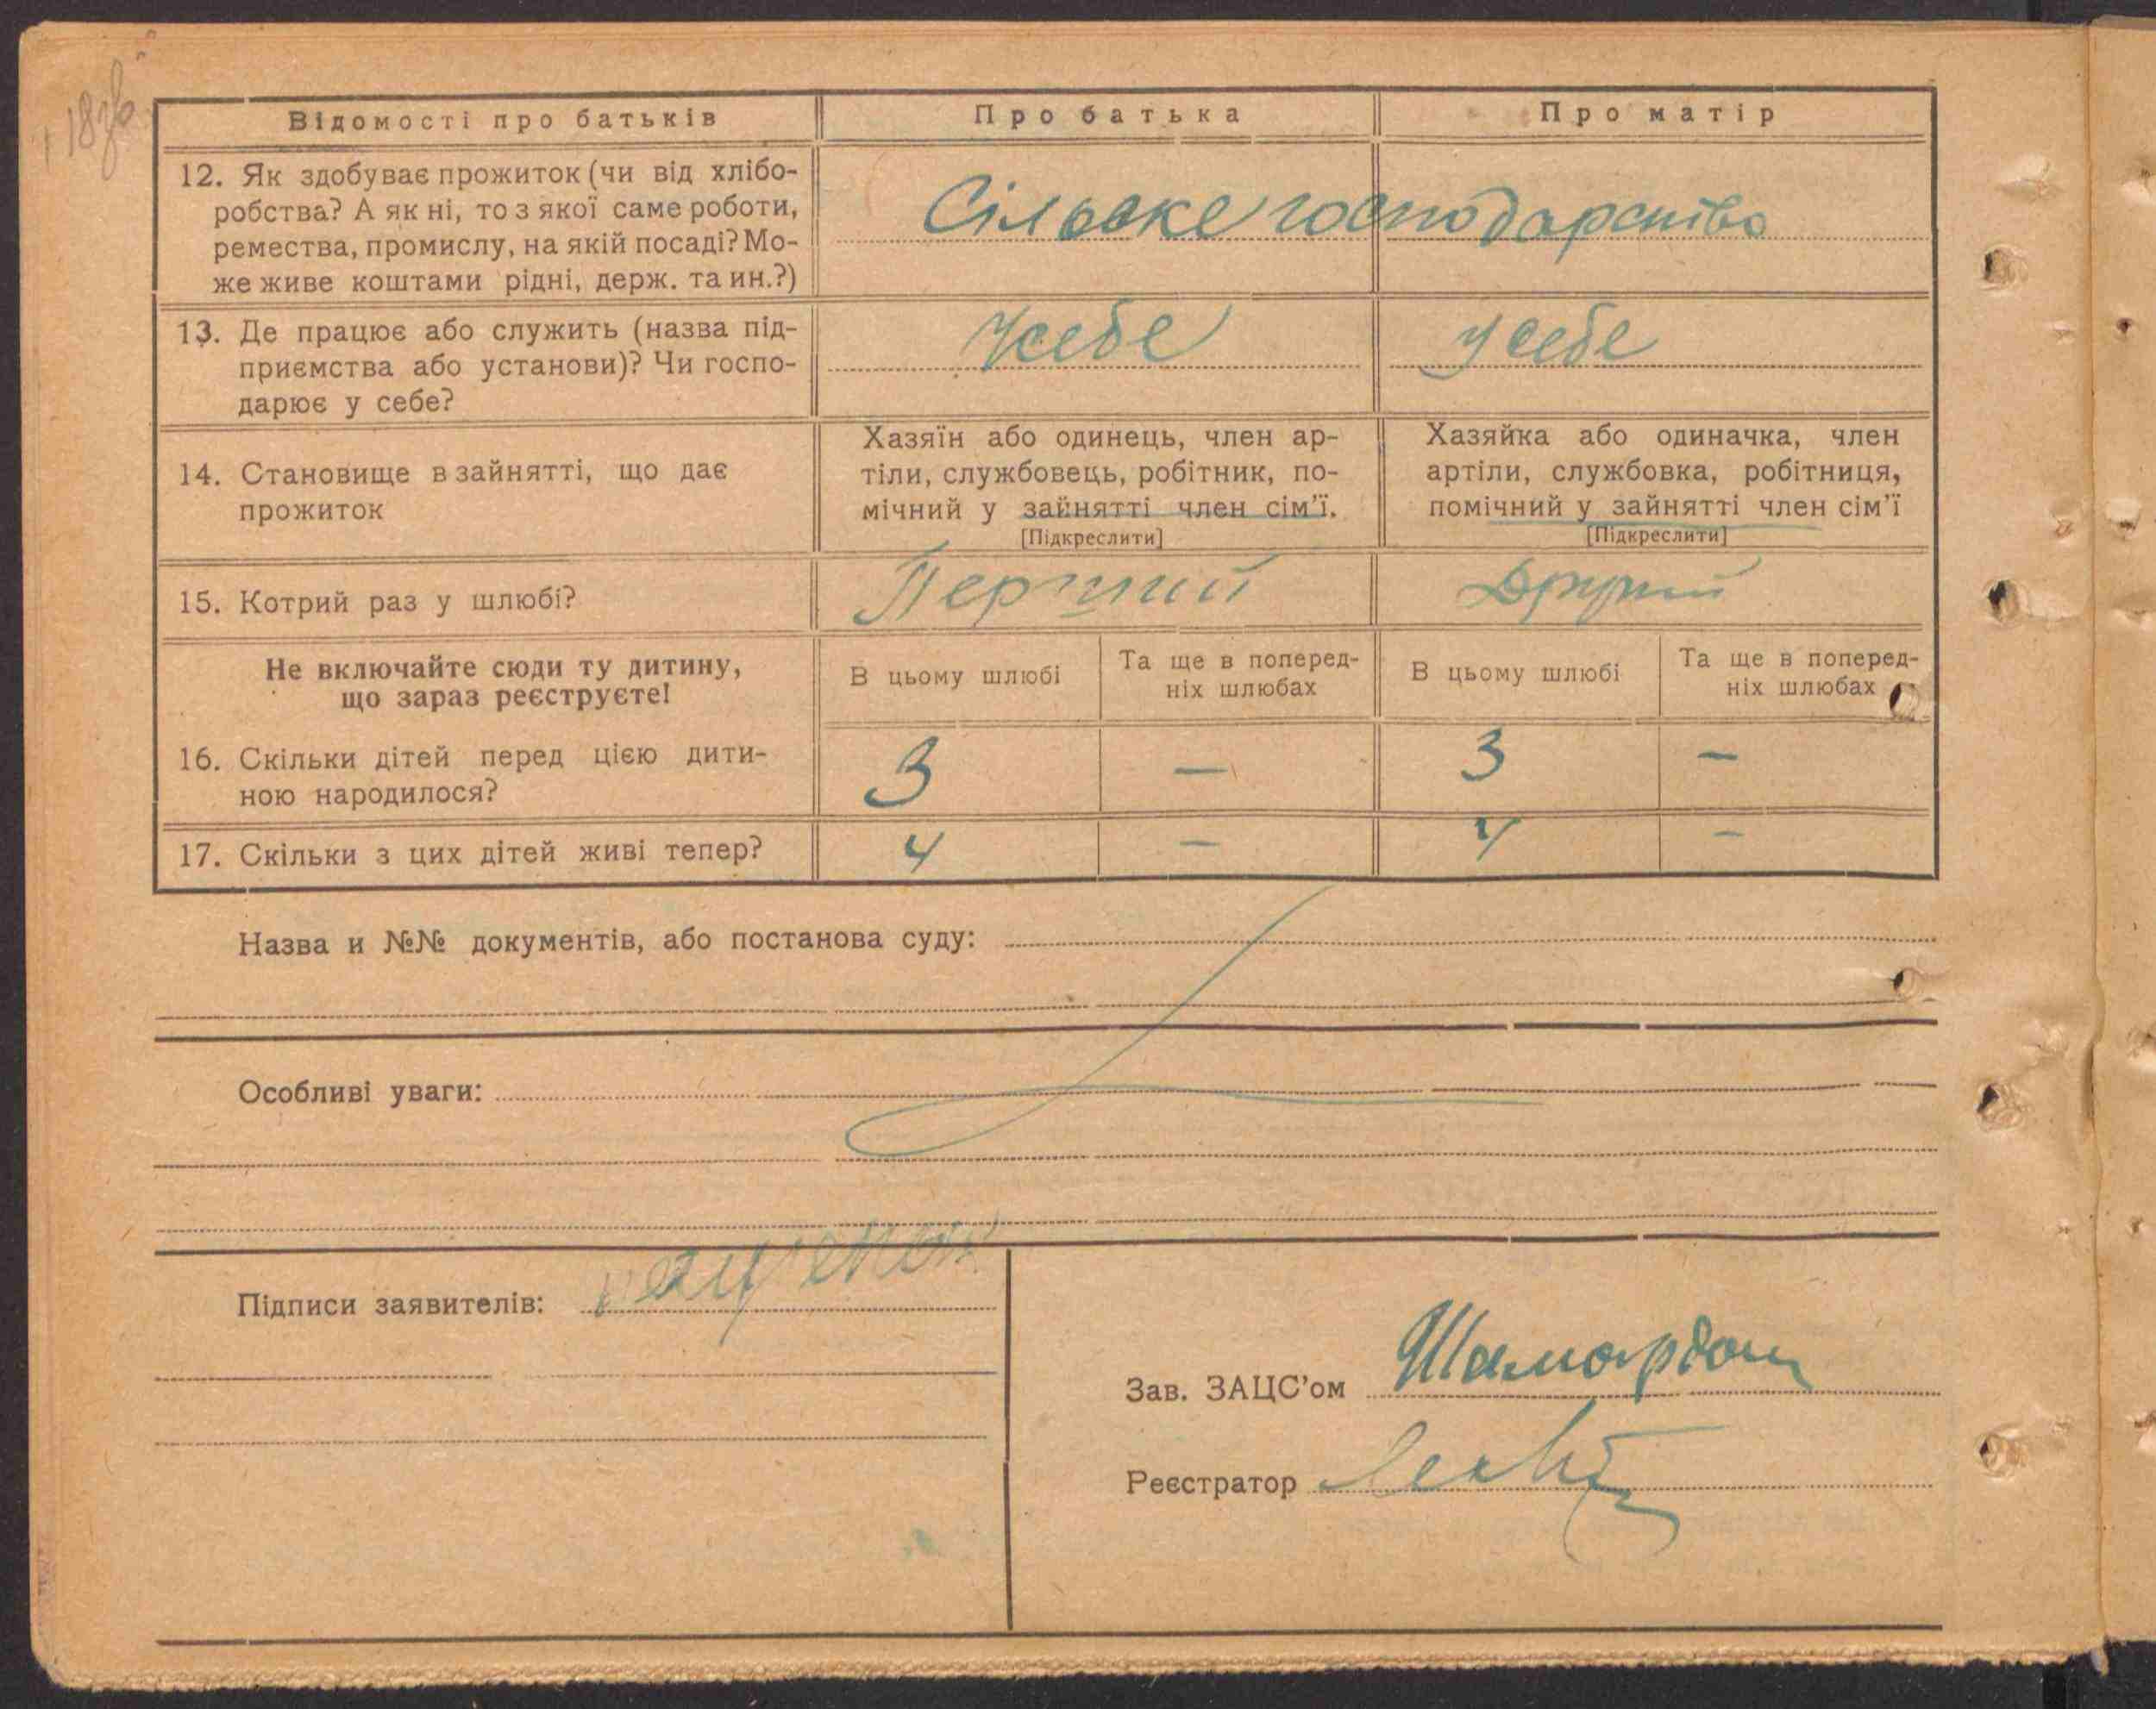 18зв
Відомості про батьків
Про батька
Про матір
12. Як здобуває прожиток (чи від хлібо-
робства? А як ні, то з якої саме роботи,
ремества, промислу, на якій посаді? Мо-
же живе коштами рідні, держ. та ин.?)
Сільске господарство
13. Де працює або служить (назва під-
приємства або установи)? Чи госпо-
дарює у себе?
У себе
У себе
14. Становище в зайнятті, що дає
прожиток
Хазяїн або одинець, член ар-
тіли, службовець, робітник, по-
мічний у зайнятті член сім'ї.
[Підкреслити]
Хазяйка або одиначка, член
артіли, службовка, робітниця,
помічний у зайнятті член сім'ї
[Підкреслити]
15. Котрий раз у шлюбі?
Перший
Другий
Не включайте сюди ту дитину,
що зараз реєструєте!
В цьому шлюбі
Та ще в поперед-
ніх шлюбах
В цьому шлюбі
Та ще в поперед-
ніх шлюбах
16. Скільки дітей перед цією дити-
ною народилося?
3 — 3 —
17. Скільки з цих дітей живі тепер?
4 — 4 —
Назва и №№ документів, або постанова суду:
Особливі уваги:
Підписи заявителів:
Зав. ЗАЦС'ом Шамардан
Реєстратор